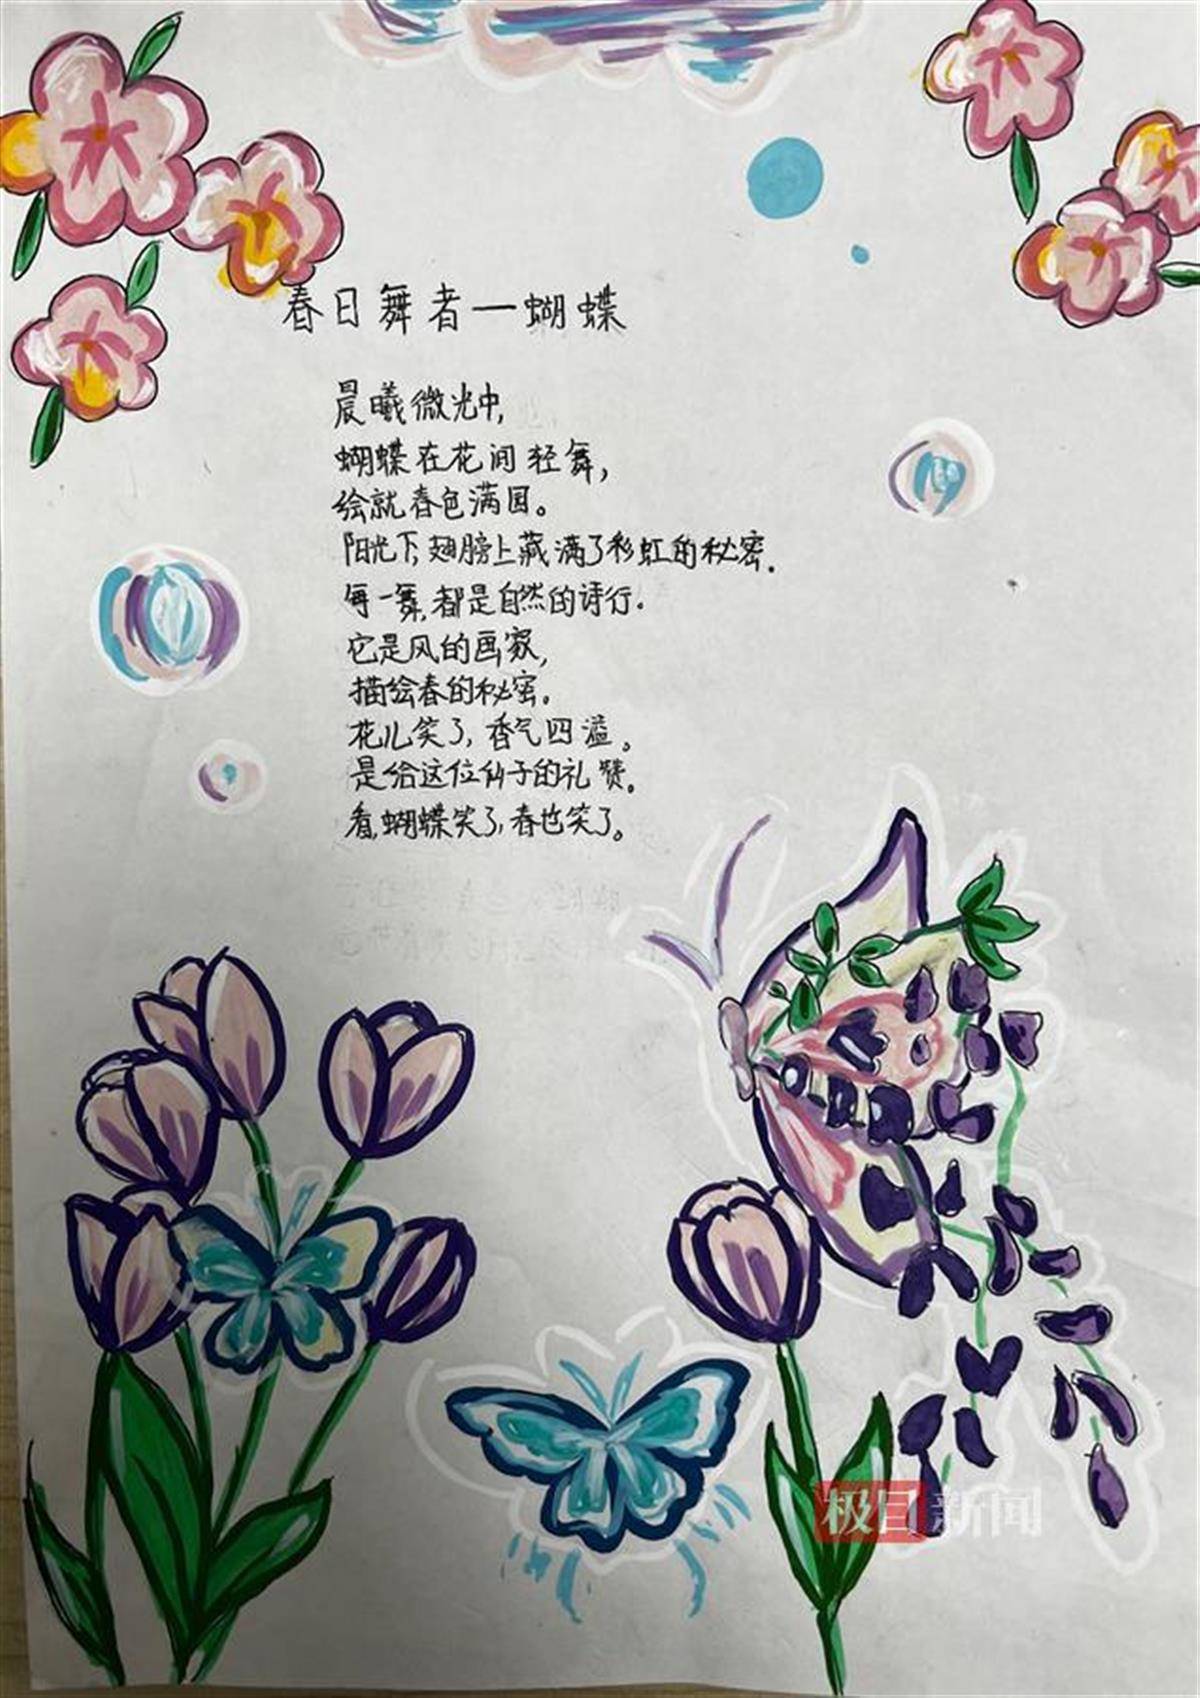 春日舞者一蝴蝶
晨曦微光中,
蝴蝶在花间轻舞,
绘就春色满园。
阳光下,翅膀上藏满了彩虹的秘密.
每一舞,都是自然的诗行.
它是风的画家,
描绘春的秘密.
花儿笑了,香气四溢。
是给这位仙子的礼赞.
看,蝴蝶笑了,春也笑了.
极目新闻